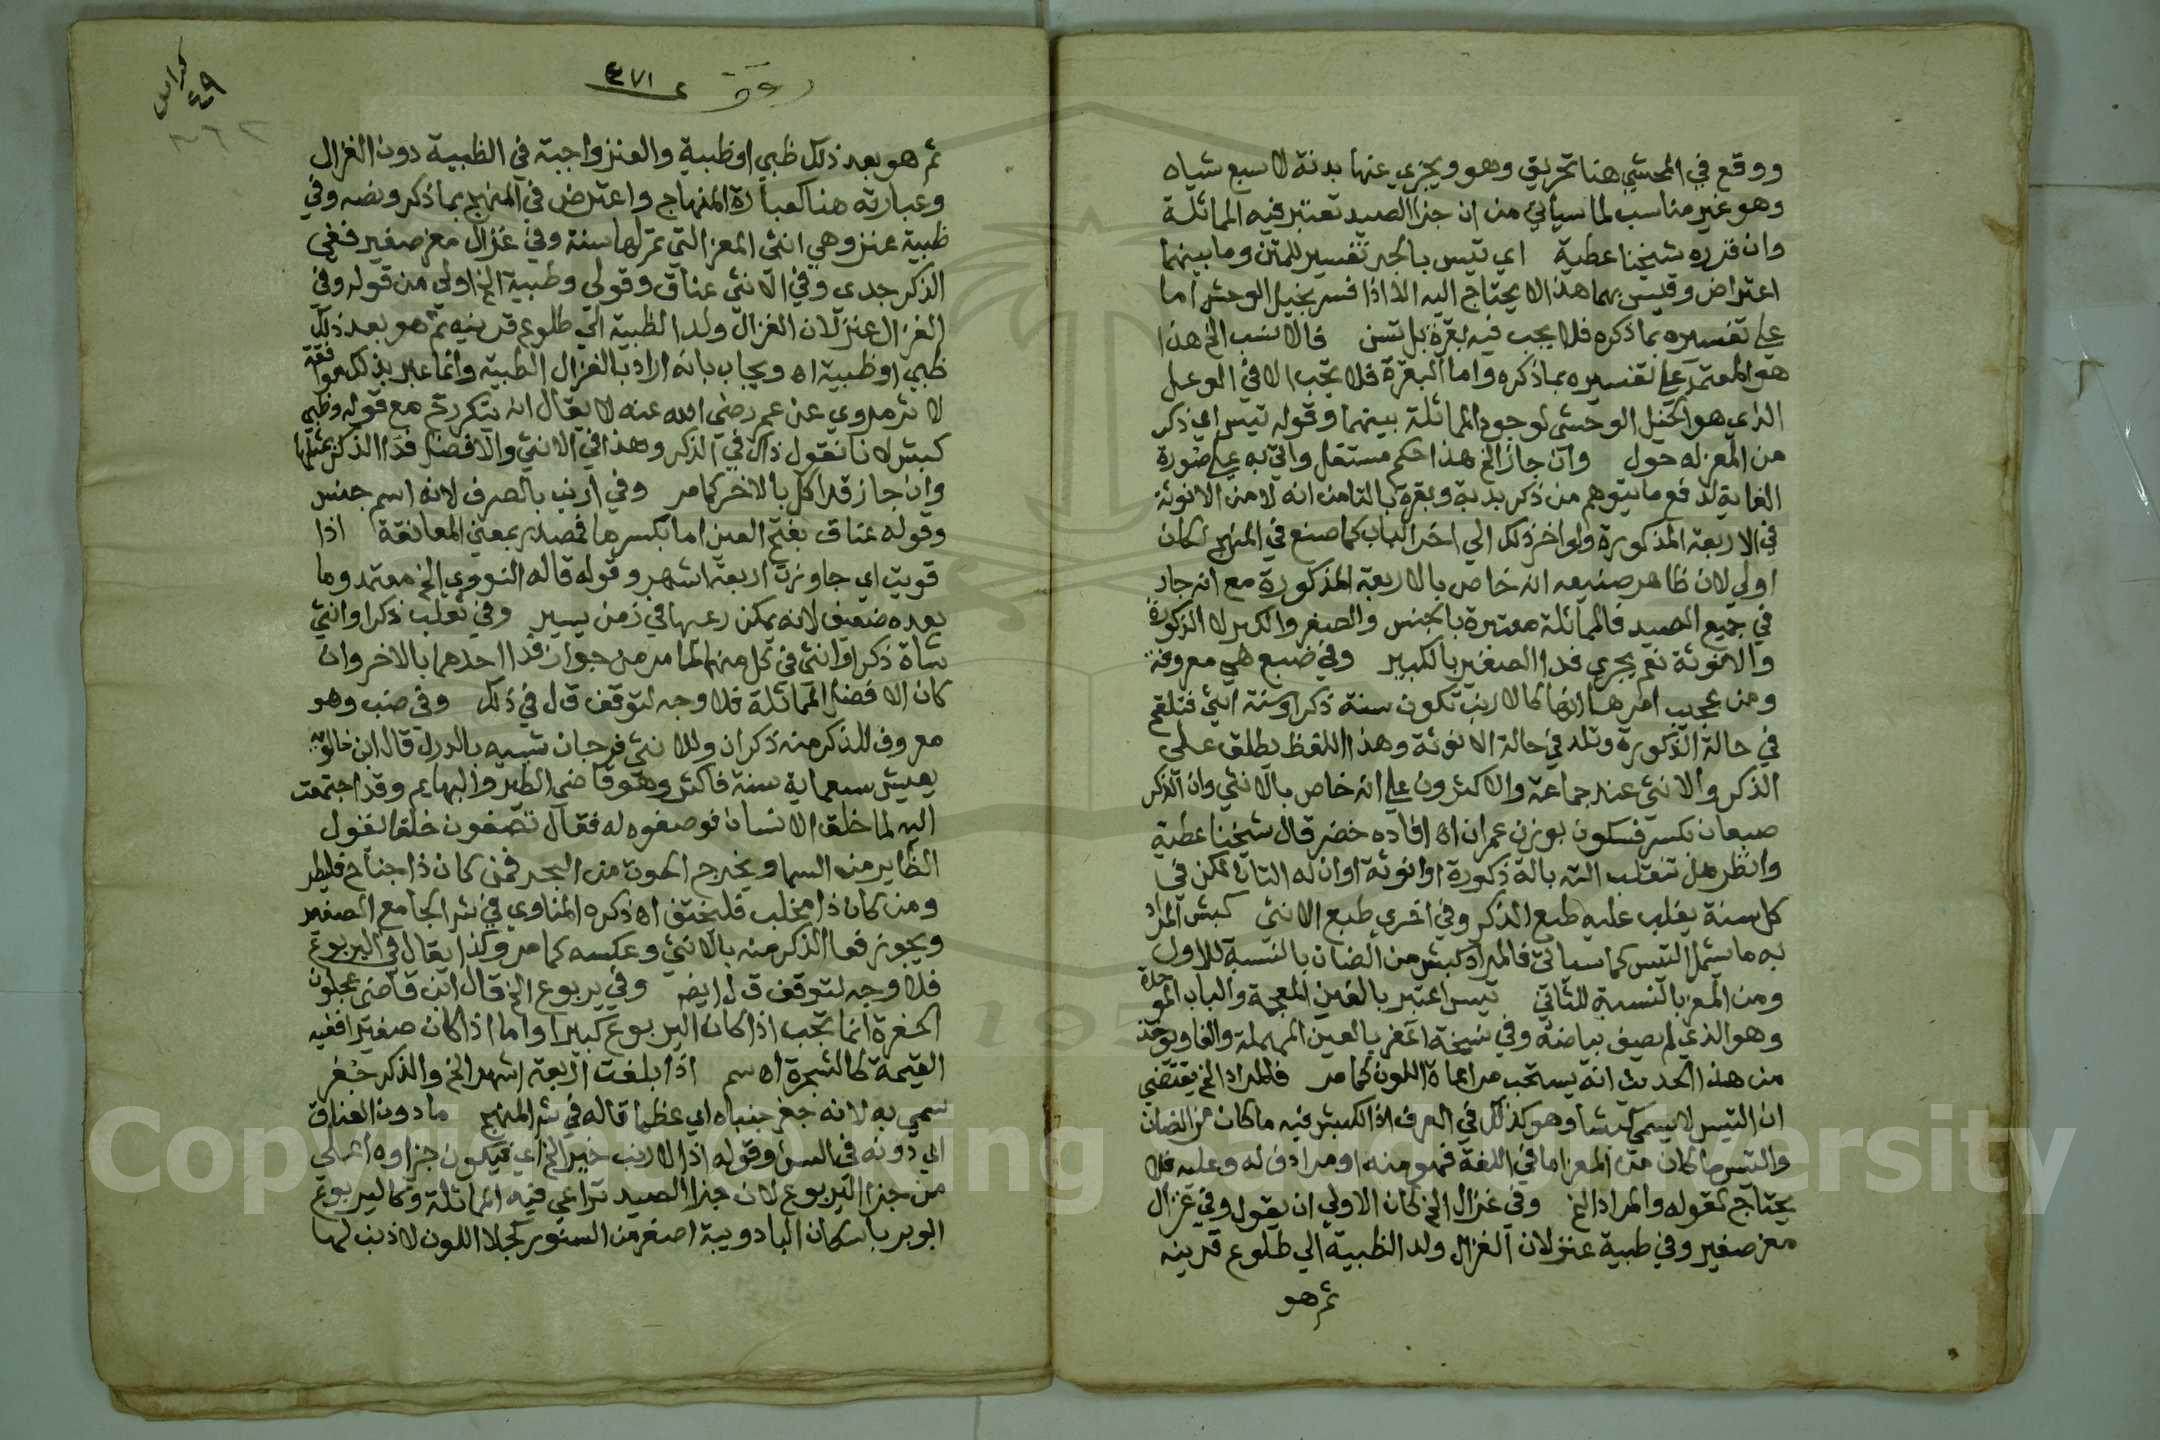 ووقع في المحشي هنا تحريف وهو ويجزي عنها بدنة لا سبع شياه
وهو غير مناسب لما سيأتي من ان جزا الصيد تعتبر فيه المماثلة
وان قرره شيخنا عطية اي تيس بالجر تفسير للمتن وما بينهما
اعتراض وقيس بهما هذا لا يحتاج اليه الا اذا فسر بخيل الوحش اما
على تفسيره بما ذكره فلا يجب فيه بقرة بل تيس فالانسب الخ هذا
هو المعتمد على تفسيره بما ذكره واما البقرة فلا تجب الا في الوعل
الذي هو الخيل الوحشي لوجود المماثلة بينهما وقوله تيس اي ذكر
من المعز له حول وان جاز الخ هذا حكم مستقل واتى به على صورة
الغاية لدفع ما يتوهم من ذكر بدنة وبقرة بالتا من انه لا من الانوثة
في الاربعة المذكورة ولو اخر ذلك الى اخر الباب كما صنع في المنهج لكان
اولى لان ظاهر صنيعه انه خاص بالاربعة المذكورة مع انه جار
في جميع الصيد فالمماثلة معتبرة بالجنس والصغر والكبر لا الذكورة
والانوثة نعم يجزي فدا الصغير بالكبير وفي ضبع هي معروفة
ومن عجيب امرها انها كالارنب تكون سنة ذكرا وسنة انثى فتلقح
في حالة الذكورة وتلد في حالة الانوثة وهذا اللفظ يطلق على
الذكر والانثى عند جماعة والاكثرون على انه خاص بالانثى وان الذكر
ضبعان بكسر فسكون بوزن عمران اه افاده خضر قال شيخنا عطية
وانظر هل تنقلب الته بالة ذكورة او انوثة او ان له التان لكن في
كل سنة يغلب عليه طبع الذكر وفي اخرى طبع الانثى كبش المراد
به ما يشمل التيس كما سياتي فالمراد كبش من الضان بالنسبة للاول
ومن المعز بالنسبة للثاني تيس اعتبر بالغين المعجمة والباب الموحدة
وهو الذي لم يصف بياضه وفي نسخة اعفر بالعين المهملة والفا ويوخذ
من هذا الحديث انه يستحب مراعاة اللون كما مر فالمراد الخ يقتضي
ان التيس لا يسمى كبشا وهو كذلك في العرف اذ الكبش فيه ما كان من الضان
والتيس ما كان من المعز اما في اللغة فهو منه او مرادف له وعليه فلا
يحتاج لقوله والمراد الخ وفي غزال الخ كان الاولى ان يقول وفي غزال
معز صغير وفي ظبية عنز لان الغزال ولد الظبية الى طلوع قرنيه
ثم هو
كراس
٤٩
٤٧١
ثم هو بعد ذلك ظبي او ظبية والعنز واجبة في الظبية دون الغزال
وعبارته هنا كعبارة المنهاج واعترض في المنهج بما ذكر ونصه وفي
ظبية عنز وهي انثى المعز التي تم لها سنة وفي غزال معز صغير ففي
الذكر جدي وفي الانثى عناق وقولي وظبية الخ اولى من قوله وفي
الغزال عنز لان الغزال ولد الظبية الى طلوع قرنيه ثم هو بعد ذلك
ظبي او ظبية اه ويجاب بانه اراد بالغزال الظبية وانما عبر بذلك موافقة
لاثر مروي عن عمر رضي الله عنه لا يقال انه يتكرر مع قوله وظبي
كبش لانا نقول ذاك في الذكر وهذا في الانثى والافضل فدا الذكر بمثلها
وان جاز فدا كل بالاخر كما مر وفي ارنب بالصرف لانه اسم جنس
وقوله عناق بفتح العين اما بكسرها فمصدر بمعنى المعانقة اذا
قويت اي جاوزت اربعة اشهر وقوله قاله النووي الخ معتمد وما
بعده ضعيف لانه يمكن رعيها في زمن يسير وفي ثعلب ذكرا وانثى
شاة ذكرا وانثى في كل منهما لما مر من جواز فدا احدهما بالاخر وان
كان الافضل المماثلة فلا وجه لتوقف ق ل في ذلك وفي ضب وهو
معروف للذكر منه ذكران وللانثى فرجان شبيه بالورل قال ابن خالويه
يعيش سبعماية سنة فاكثر وهو قاضي الطير والبهايم وقد اجتمعت
اليه لما خلق الانسان فوصفوه له فقال تصفون خلقا ينزل
الطاير من السما ويخرج الحوت من البحر فمن كان ذا جناح فليطر
ومن كان ذا مخلب فليختف اه ذكره المناوي في شر الجامع الصغير
ويجوز فدا الذكر منه بالانثى وعكسه كما مر وكذا يقال في اليربوع
فلا وجه لتوقف ق ل ايضا وفي يربوع الخ قال ابن قاضي عجلون
الجفرة انما تجب اذا كان اليربوع كبيرا واما اذا كان صغيرا ففيه
القيمة كالشجرة اه سم اذا بلغت اربعة اشهر الخ والذكر جفر
سمي به لانه جفر جنباه اي عظما قاله في شر المنهج ما دون العناق
اي دونه في السن وقوله اذ الارنب خير الخ اي فيكون جزاوه اعلى
من جزا اليربوع لان جزا الصيد تراعي فيه المماثلة وكاليربوع
الوبر باسكان البا دويبة اصغر من السنور كحلا اللون لا ذنب لها
Copyright © King Saud University